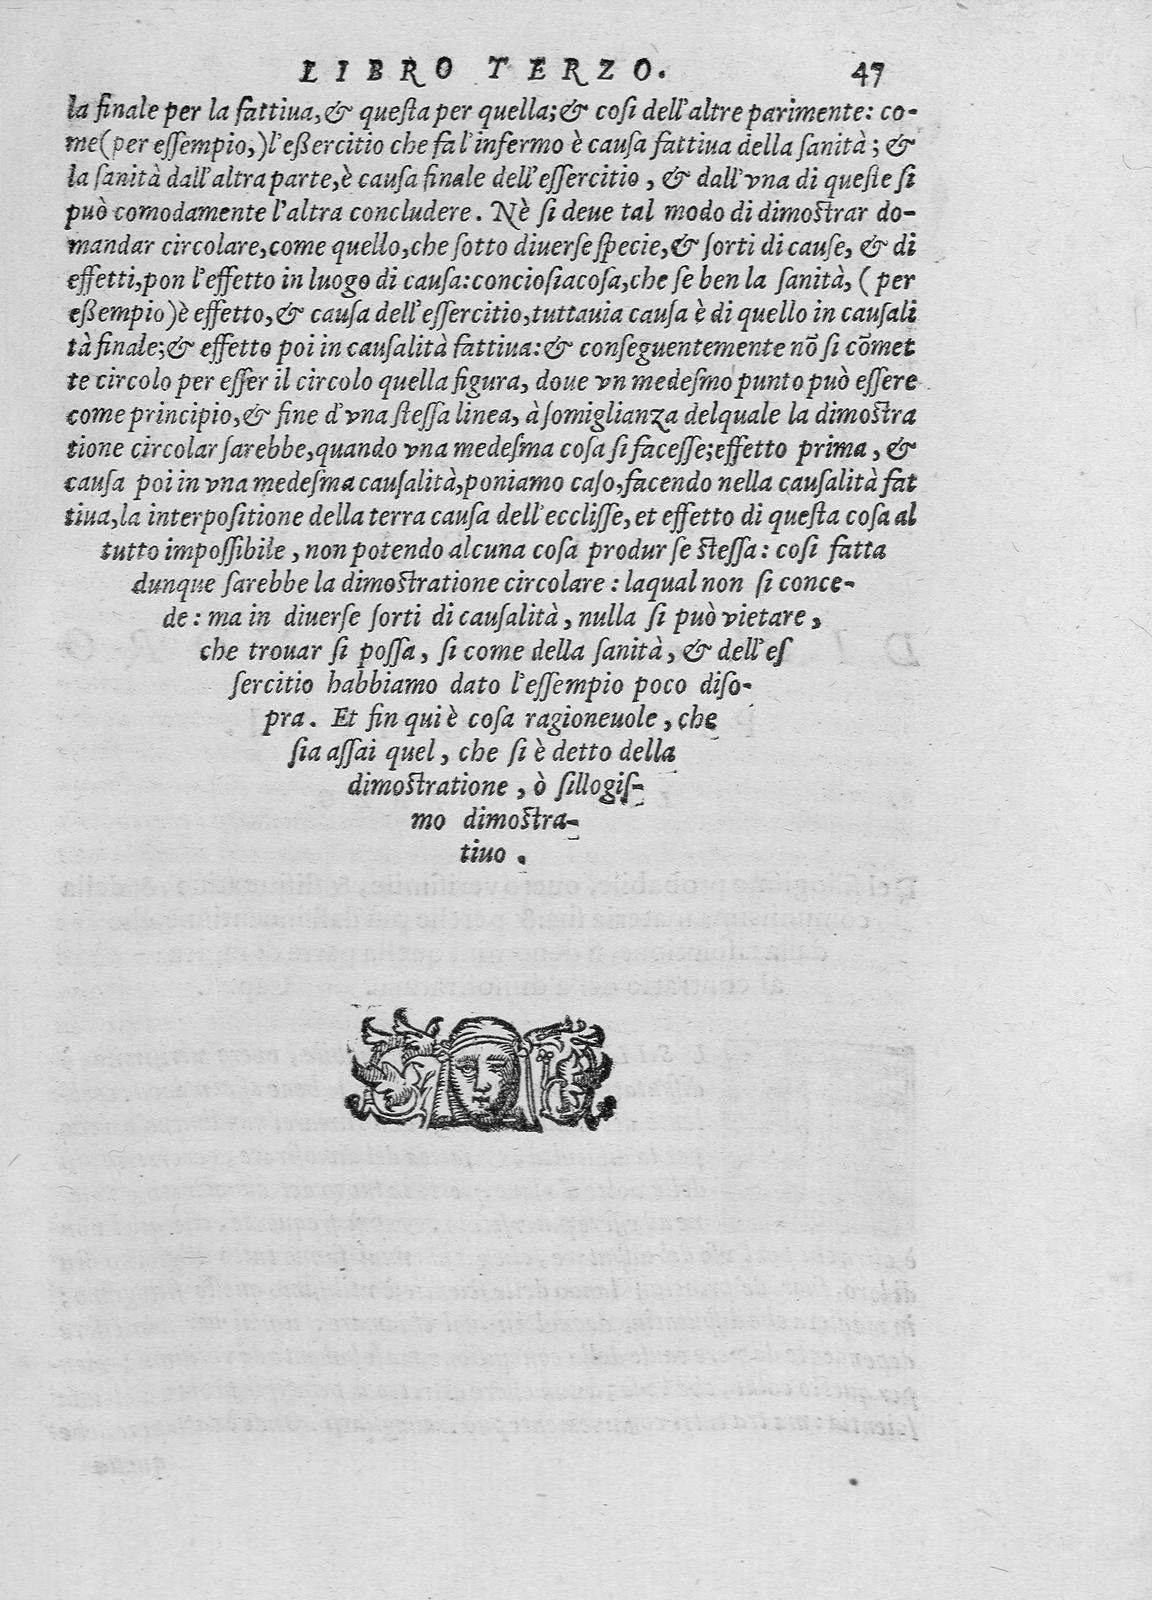 LIBRO TERZO. 47
la finale per la fattiua, & queſta per quella; & coſi dell'altre parimente: co-
me (per eſſempio,) l'eßercitio che fa l'infermo è cauſa fattiua della ſanità; &
la ſanità dall'altra parte, è cauſa finale dell'eſſercitio, & dall'vna di queſte ſi
può comodamente l'altra concludere. Nè ſi deue tal modo di dimoſtrar do-
mandar circolare, come quello, che ſotto diuerſe ſpecie, & ſorti di cauſe, & di
effetti, pon l'effetto in luogo di cauſa: concioſiacoſa, che ſe ben la ſanità, (per
eßempio) è effetto, & cauſa dell'eſſercitio, tuttauia cauſa è di quello in cauſali
tà finale; & effetto poi in cauſalità fattiua: & conſeguentemente nõ ſi cõmet
te circolo per eſſer il circolo quella figura, doue vn medeſmo punto può eſſere
come principio, & fine d'vna ſteſſa linea, à ſomiglianza delquale la dimoſtra
tione circolar ſarebbe, quando vna medeſma coſa ſi faceſſe; effetto prima, &
cauſa poi in vna medeſma cauſalità, poniamo caſo, facendo nella cauſalità fat
tiua, la interpoſitione della terra cauſa dell'eccliſſe, et effetto di queſta coſa al
tutto impoſſibile, non potendo alcuna coſa produr ſe ſteſſa: coſi fatta
dunque ſarebbe la dimoſtratione circolare: laqual non ſi conce-
de: ma in diuerſe ſorti di cauſalità, nulla ſi può vietare,
che trouar ſi poſſa, ſi come della ſanità, & dell'eſ
ſercitio habbiamo dato l'eſſempio poco diſo-
pra. Et fin qui è coſa ragioneuole, che
ſia aſſai quel, che ſi è detto della
dimoſtratione, ò ſillogiſ-
mo dimoſtra-
tiuo.